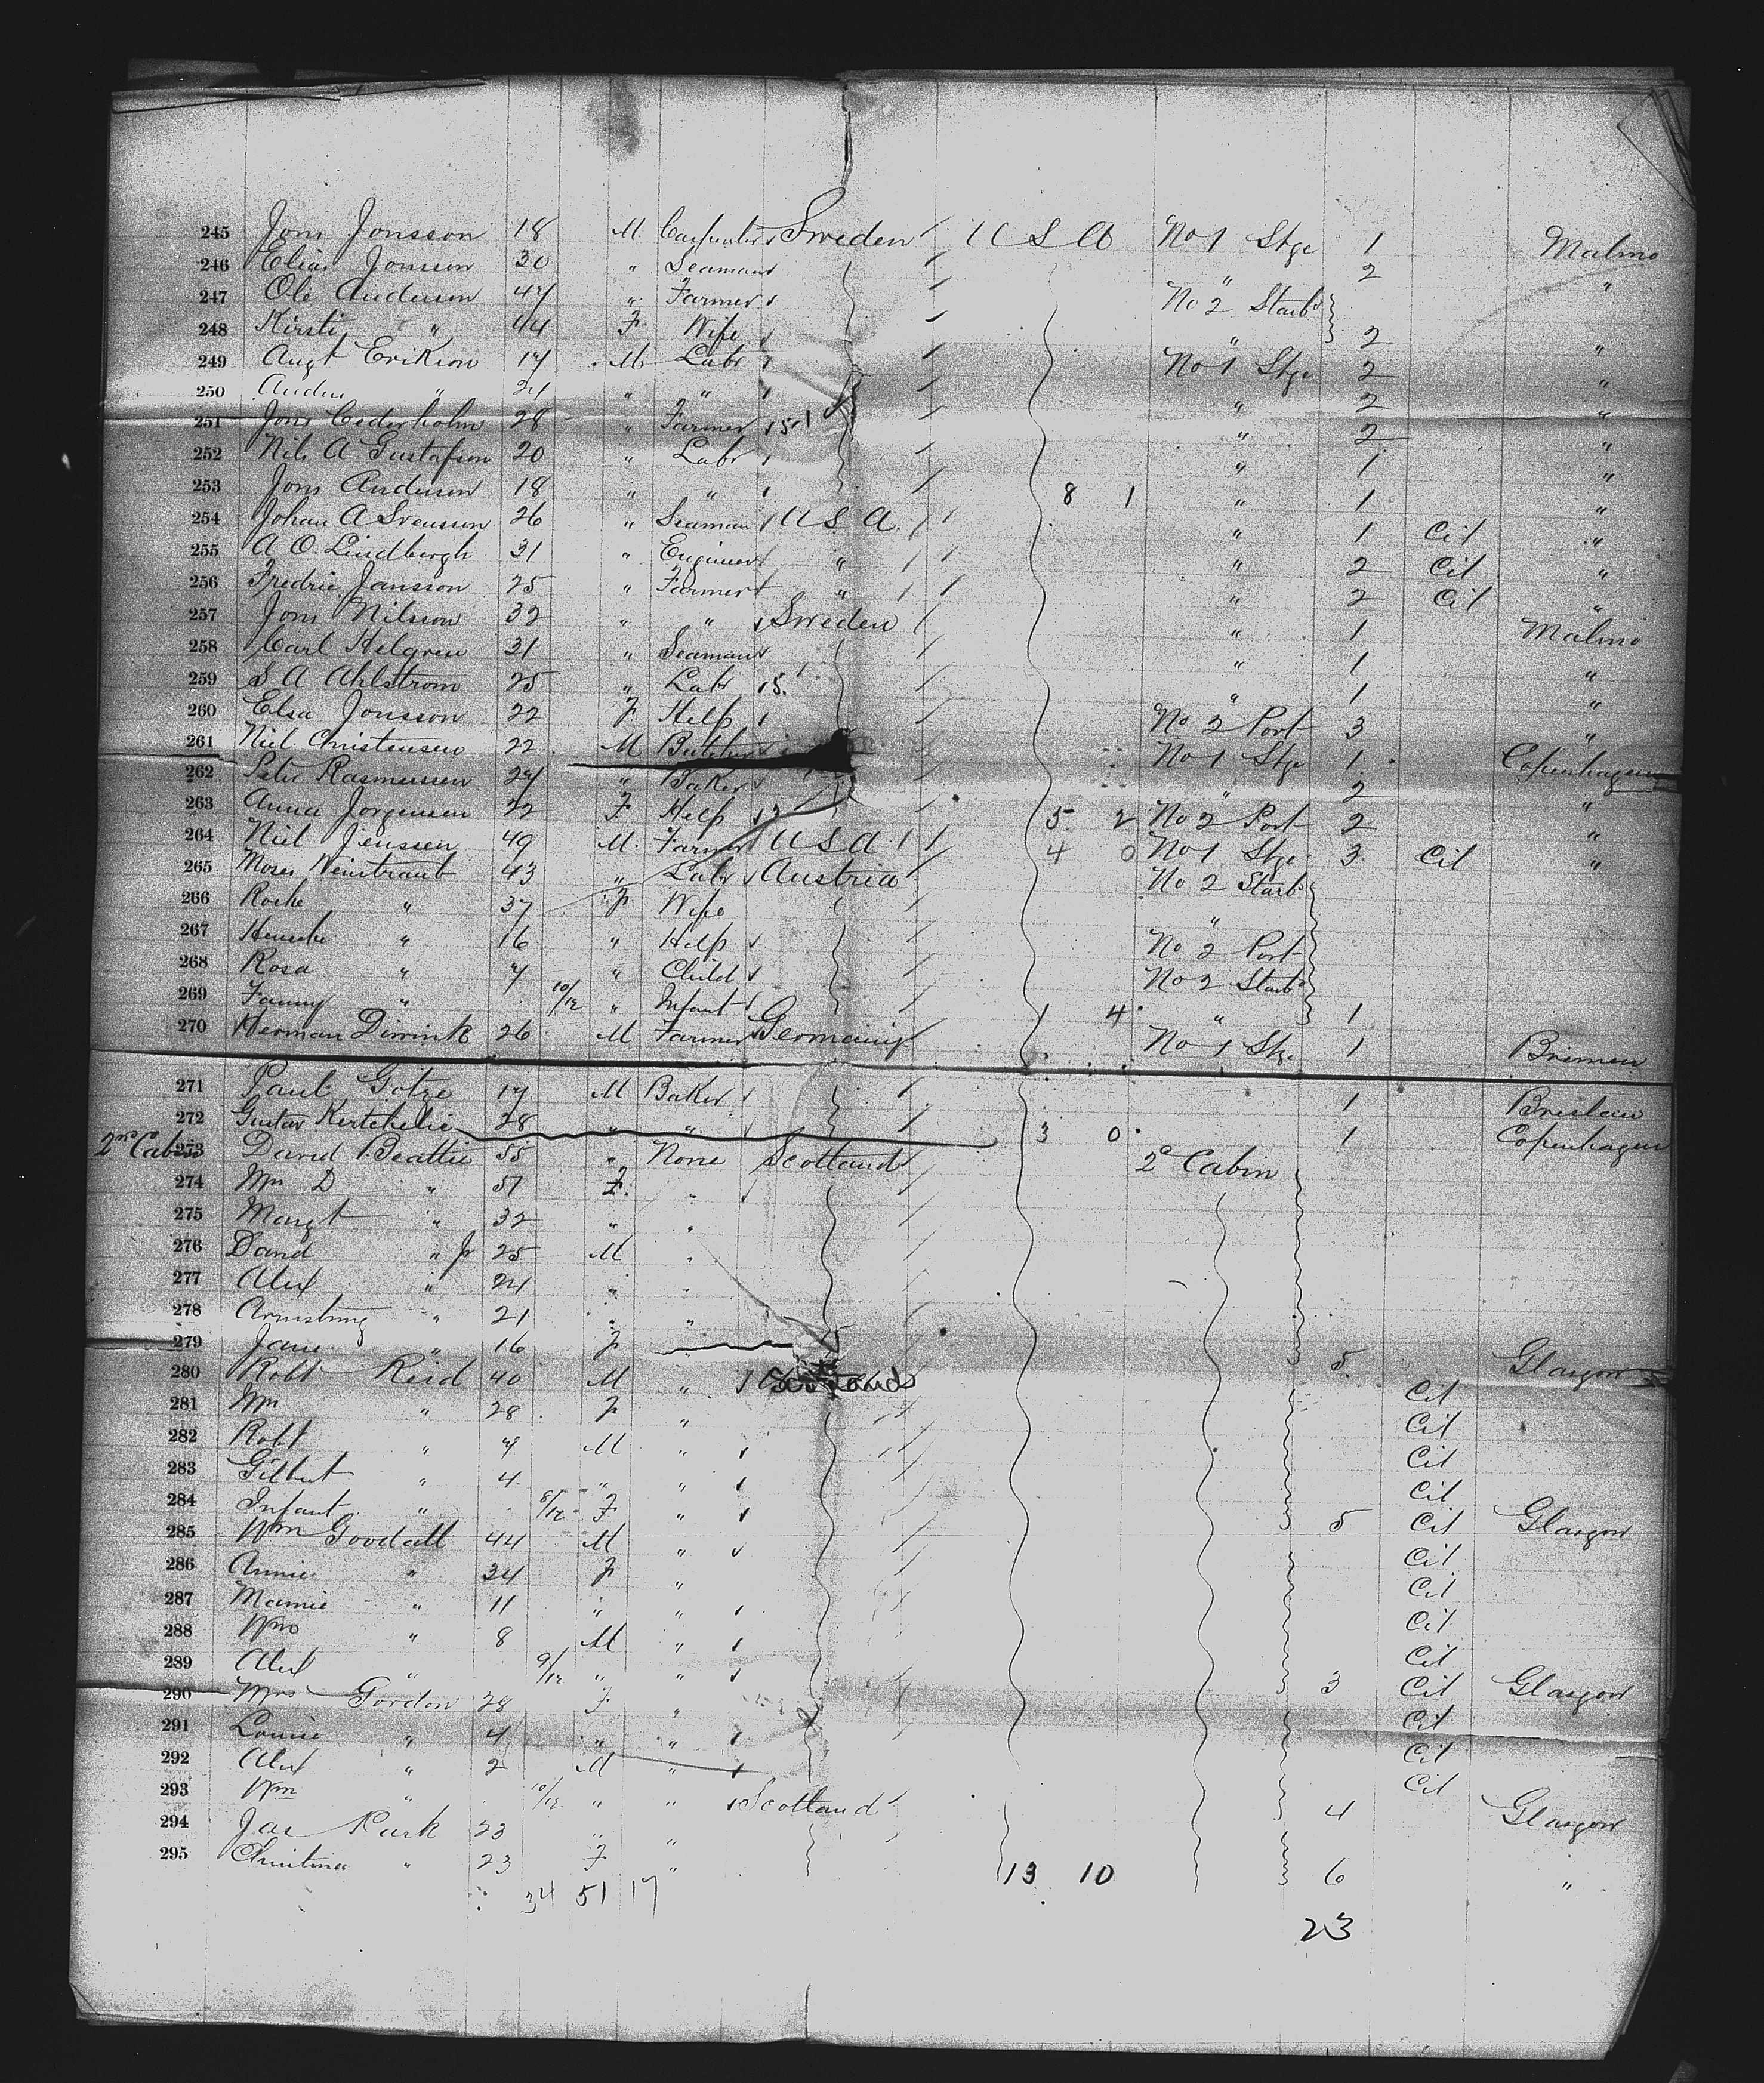 245 Jons Jonsson 18 M Carpenter Sweden U S A No 1 Stge 1 Malmo
246 Elias Jonsson 30 " Seaman " 2 "
247 Ole Anderson 47 " Farmer No 2 Starbd
248 Kirsti " 44 F Wife " 2 "
249 Augt Erikson 17 M Labr No 1 Stge 2 "
250 " 21 " " " 2 "
251 Jons Cederholm 28 " Farmer " 2 "
252 Nils A Gustafson 20 " Labr " 1 "
253 Jons Anderson 18 " " 8 1 " 1 "
254 Johan A Svensson 26 " Seaman U S A " 1 Cit "
255 A O. Lindbergh 31 " Engineer " " 2 Cit "
256 Fredric Jansson 25 " Farmer " " 2 Cit "
257 Jons Nilsson 32 " " Sweden " 1 Malmo
258 Carl Helgren 31 " Seaman " 1 "
259 S A Ahlstrom 25 " Labr " 1 "
260 Elsa Jonsson 22 F Help No 2 Port 3 "
261 Niel Christensen 22 M Butcher No 1 Stge 1 Copenhagen
262 Peter Rasmussen 27 " Baker " 2 "
263 Anna Jorgensen 22 F Help 5 2 No 2 Port 2 "
264 Niel Jenssen 49 M Farmer U S A 4 0 No 1 Stge 3 Cit "
265 Moses Weintraub 43 " Labr Austria No 2 Starbd
266 " 37 F Wife "
267 " 16 " Help No 2 Port
268 Rosa " 7 " Child No 2 Starbd
269 Fanny " 10/12 " Infant 1 4 " 1
270 Herman Dirrink 26 M Farmer Germany No 1 Stge 1 Bremen
271 Paul Gotze 17 M Baker 1 Breslau
272 Gustav 28 " " 3 0 1 Copenhagen
2nd Cabin 273 David Beattie 55 " None Scotland 2d Cabin
274 D " 51 F "
275 Margt " 32 " "
276 David " Jr 25 M "
277 Alex " 24 " "
278 Armstrong " 21 " "
279 Jane " 16 F " 5 Glasgow
280 Robt Reid 40 M " Cit
281 " 28 F " Cit
282 Robt " 7 M " Cit
283 Gilbert " 4 " " Cit
284 Infant " 8/12 F " 5 Cit Glasgow
285 Wm Goodall 44 M " Cit
286 Annie " 34 F " Cit
287 Mamie " 11 " " Cit
288 Wm " 8 M " Cit
289 Alex " 9/12 " " 3 Cit Glasgow
290 Mrs Gordon 28 F " Cit
291 Louise " 4 " " Cit
292 Alex " 2 M " Cit
293 Wm " 10/12 " " Scotland 4 Glasgow
294 Jas Park 23 " "
295 Christina " 23 F " 13 10 6 "
34 51 17
23